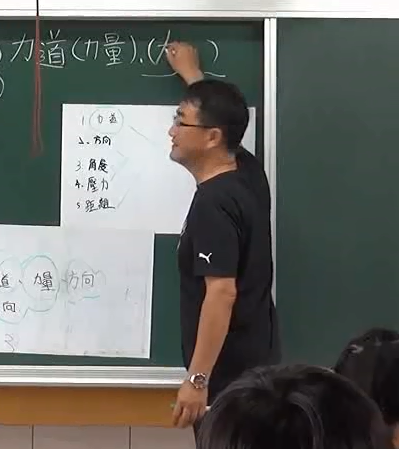 ) 力道(力量)、(方 )
)
1 力道
2、方向
3.角度
4.壓力
5.距離
道、力量、方向
向
3